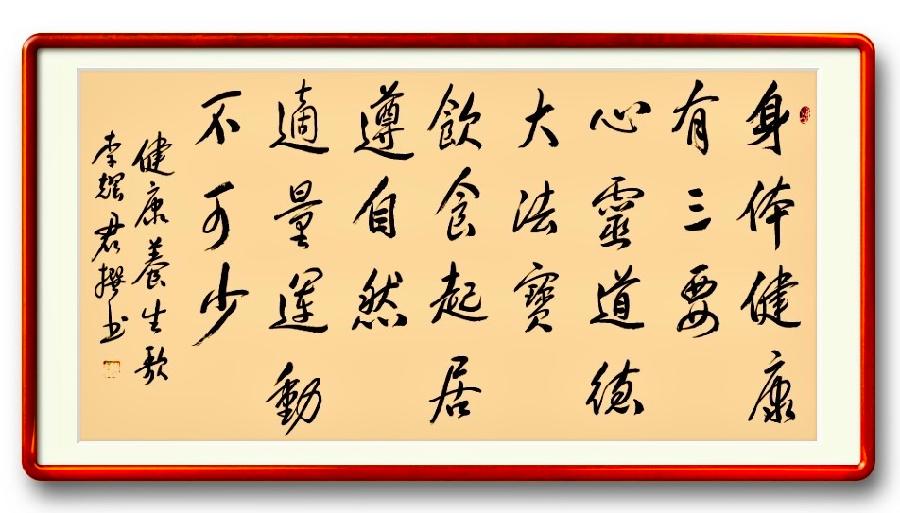 身体健康
有三要
心靈道德
大法寶
飲食起居
遵自然
適量運動
不可少
健康養生歌
李耀君撰书